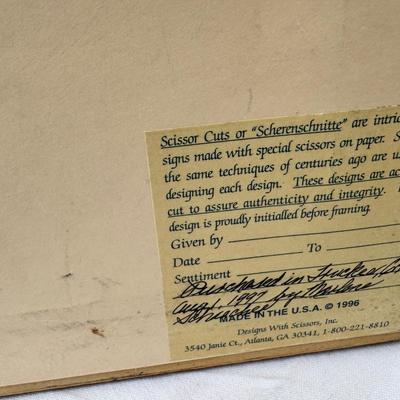 Scissor Cuts or "Scherenschnitte" are intric
signs made with special scissors on paper. S
the same techniques of centuries ago are us
designing each design. These designs are ac
cut to assure authenticity and integrity.
design is proudly initialled before framing.
Given by
Date To
Sentiment
Purchased in Truckee
Aug. 1997
by Marlene
MADE IN THE U.S.A. © 1996
Designs With Scissors, Inc.
3540 Janie Ct., Atlanta, GA 30341, 1-800-221-8810